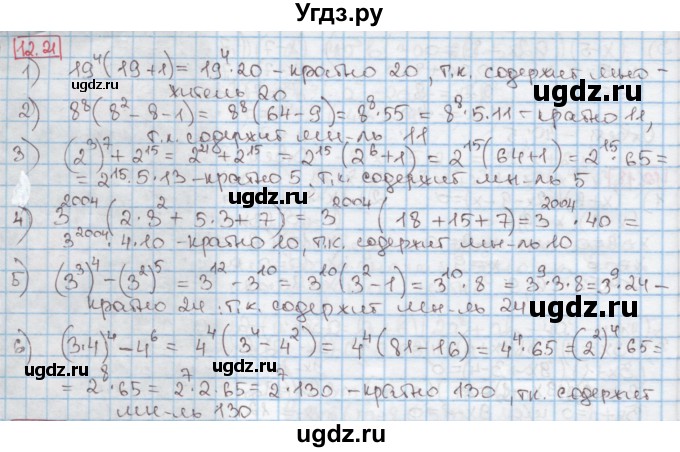 Угдз.ру
12.21
1) 19⁴(19+1)= 19⁴·20 – кратно 20, т.к. содержит мно-
житель 20
2) 8⁸(8²-8-1)= 8⁸(64-9)= 8⁸·55 = 8⁸·5·11 – кратно 11,
т.к. содержит мн-ль 11
3) (2³)⁷+2¹⁵= 2²¹+2¹⁵ = 2¹⁵(2⁶+1) = 2¹⁵(64+1)=2¹⁵·65=
= 2¹⁵·5·13 – кратно 5, т.к. содержит мн-ль 5
4) 3²⁰⁰⁴(2·3²+5·3+7) = 3²⁰⁰⁴(18+15+7)=3²⁰⁰⁴·40 =
3²⁰⁰⁴·4·10 – кратно 10, т.к. содержит мн-ль 10
5) (3³)⁴-(3²)⁵= 3¹²-3¹⁰= 3¹⁰(3²-1)= 3¹⁰·8 = 3⁹·3·8=3⁹·24 –
кратно 24 т.к. содержит мн-ль 24
6) (3·4)⁴-4⁶ = 4⁴(3⁴-4²)= 4⁴(81-16)= 4⁴·65=(2²)⁴·65=
= 2⁸·65= 2⁷·2·65= 2⁷·130 – кратно 130, т.к. содержит
мн-ль 130
ugdz.ru
ugdz.ru
ugdz.ru
ugdz.ru
ugdz.ru
ugdz.ru
ugdz.ru
ugdz.ru